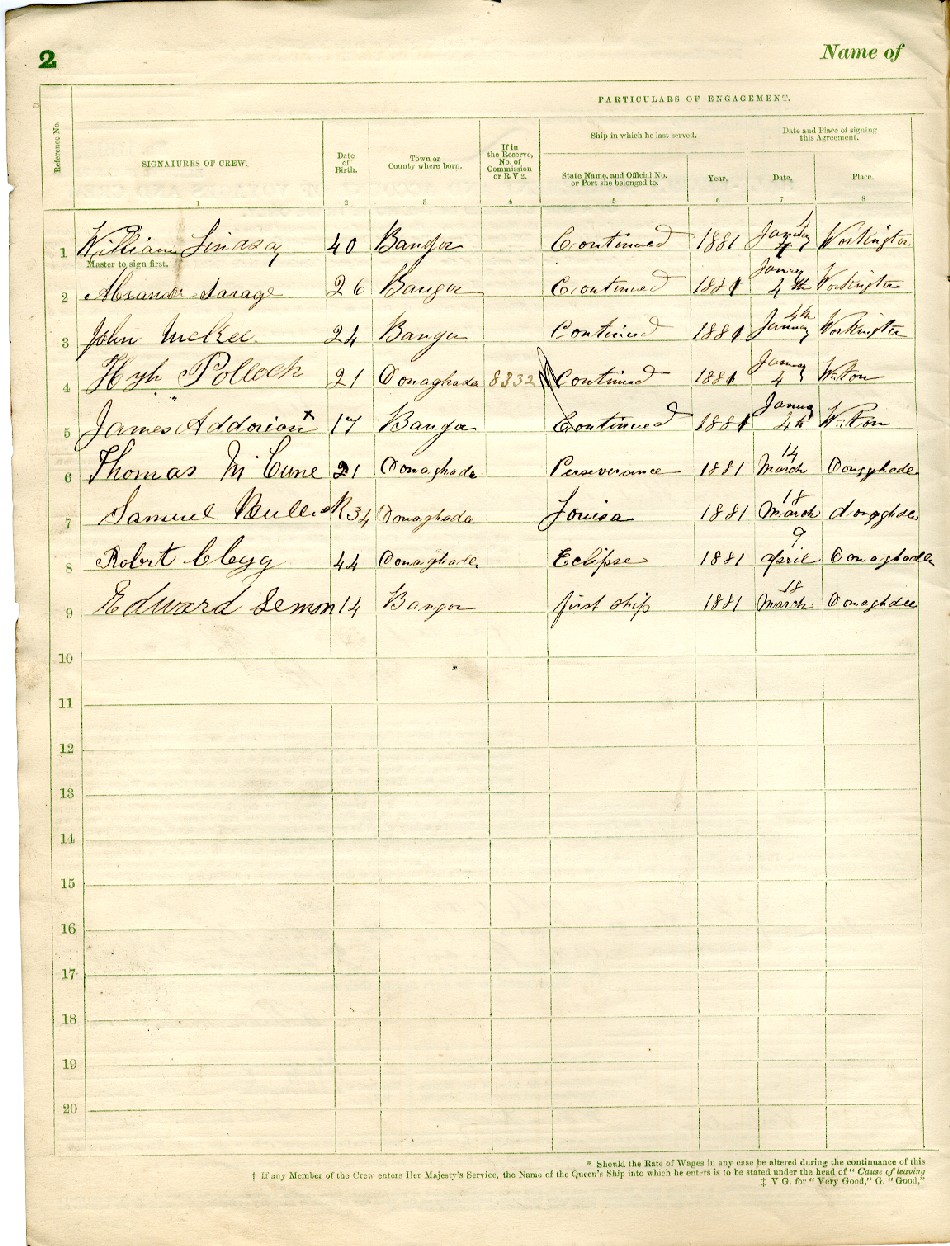 2
Name of
PARTICULARS OF ENGAGEMENT.
Reference No.
SIGNATURES OF CREW.
Date of Birth.
Town or County where born.
If in the Reserve, No. of Commission or R.V 2.
Ship in which he last served.
Date and Place of signing this Agreement.
State Name, and Official No. or Port she belonged to.
Year.
Date.
Place.
1 2 3 4 5 6 7 8
1 William Lindsay 40 Bangor Continued 1881 Workington
Master to sign first.
2 Alexander Savage 26 Bangor Continued 1881 January 4th Workington
3 John McKee 24 Bangor Continued 1881 January 4th Workington
4 Hugh Pollock 21 Donaghadee 8332 Continued 1881 January 4 W.ton
5 James Addorian x 17 Bangor Continued 1881 January 4th W.ton
6 Thomas McCune 21 Donaghadee Perseverance 1881 14 March Donaghadee
7 Samuel 34 Donaghadee Louisa 1881 18 March donaghdee
8 Robert Clegg 44 Donaghadee Eclipse 1881 9 April Donaghadee
9 Edward Lemon 14 Bangor first ship 1881 18 March Donaghdee
10
11
12
13
14
15
16
17
18
19
20
* Should the Rate of Wages in any case be altered during the continuance of this
† If any Member of the Crew enters Her Majesty's Service, the Name of the Queen's Ship into which he enters is to be stated under the head of "Cause of leaving
‡ V G. for "Very Good," G. "Good,"